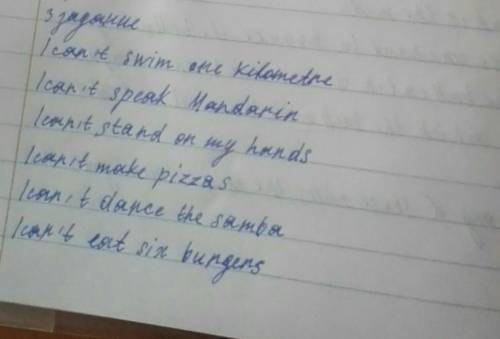 3 задание
I can't swim one kilometre
I can't speak Mandarin
I can't stand on my hands
I can't make pizzas
I can't dance the samba
I can't eat six burgers